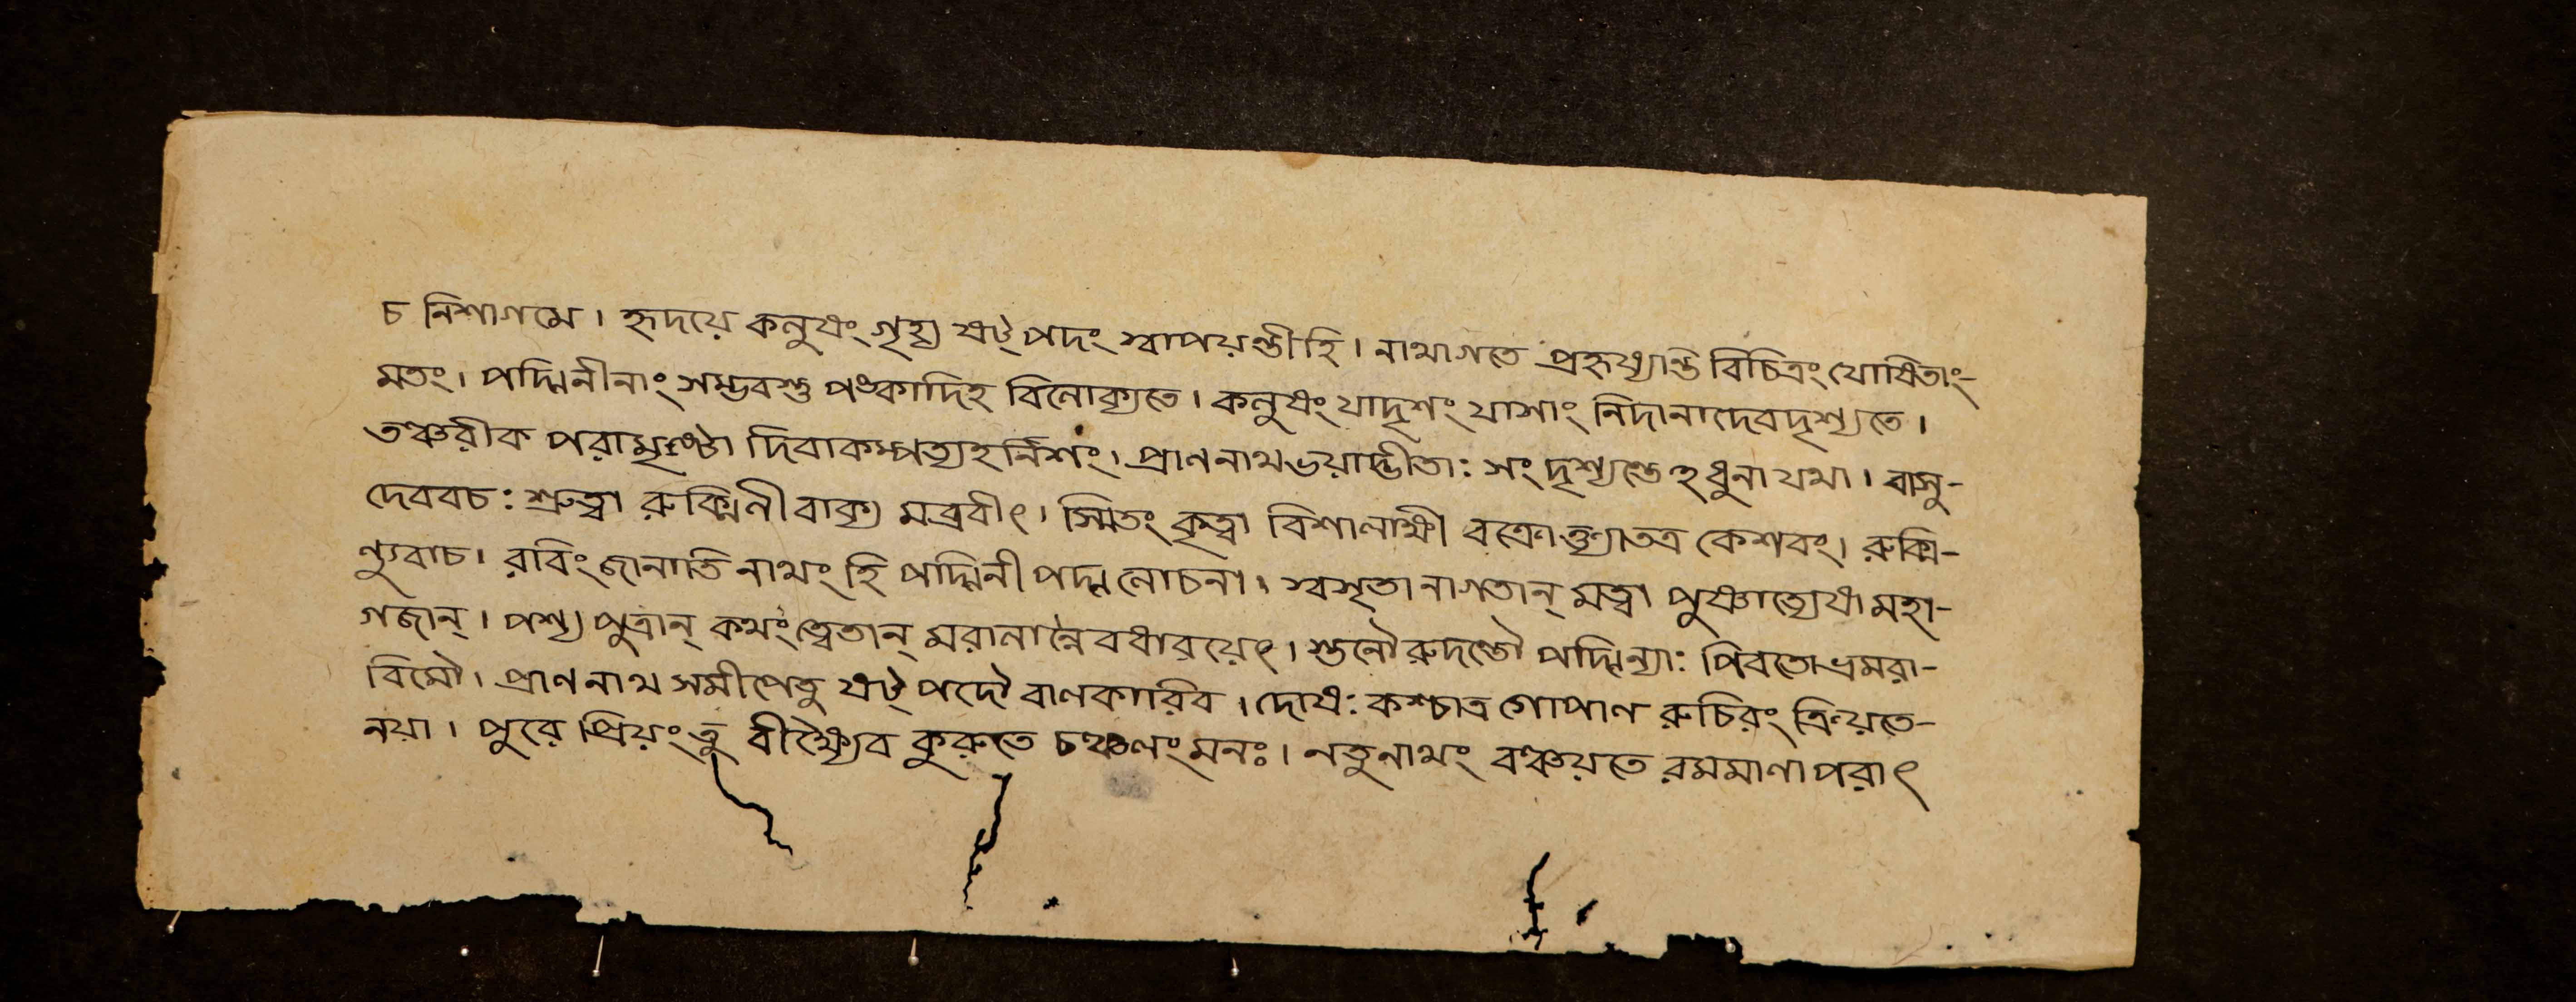 চ নিশাগমে। হৃদয়ে কলুষং গৃহ্য ষট্পদং স্বাপয়ন্তী হি। নাথাগতে প্রহৃষ্যন্তি বিচিত্রং যোষিতাং-
মতং। পদ্মিনীনাং সম্ভবশ্তু পঙ্কাদিহ বিলোক্যতে। কলুষং যাদৃশং যাসাং নিদানাদেবদৃশ্যতে।
তঞ্চরীক পরামৃষ্টা দিবাকম্পত্যহর্নিশং। প্রাণনাথভয়াদ্ভীতা: সংদৃশ্যন্তে হধুনা যথা। বাসু-
দেববচ: শ্রুত্বা রুক্মিনী বাক্য মব্রবীৎ। স্মিতং কৃত্বা বিশালাক্ষী বক্রোক্ত্যাতত্র কেশবং। রুক্মি-
ণ্যুবাচ। রবিং জানাতি নাথং হি পদ্মিনী পদ্মলোচনা। স্বসৃতানাগতান্ মত্বা পুষ্ণাত্যেষা মহা-
গজান্। পশ্য পুত্রান্ কথং ত্বেতান্ মরালান্নৈবধারয়েৎ। স্তনৌ রুদন্তৌ পদ্মিন্যা: পিবতো ভ্রমরা-
বিমৌ। প্রাণনাথ সমীপেতু ষট্পদৌ বালকাবিব। দোষ: কশ্চাত্র গোপাল রুচিরং ক্রিয়তে-
নয়া। পুরে প্রিয়ং তু বীক্ষ্যৈব কুরুতে চঞ্চলং মনঃ। নতুনাথং বঞ্চয়তে রমমাণা পরাৎ